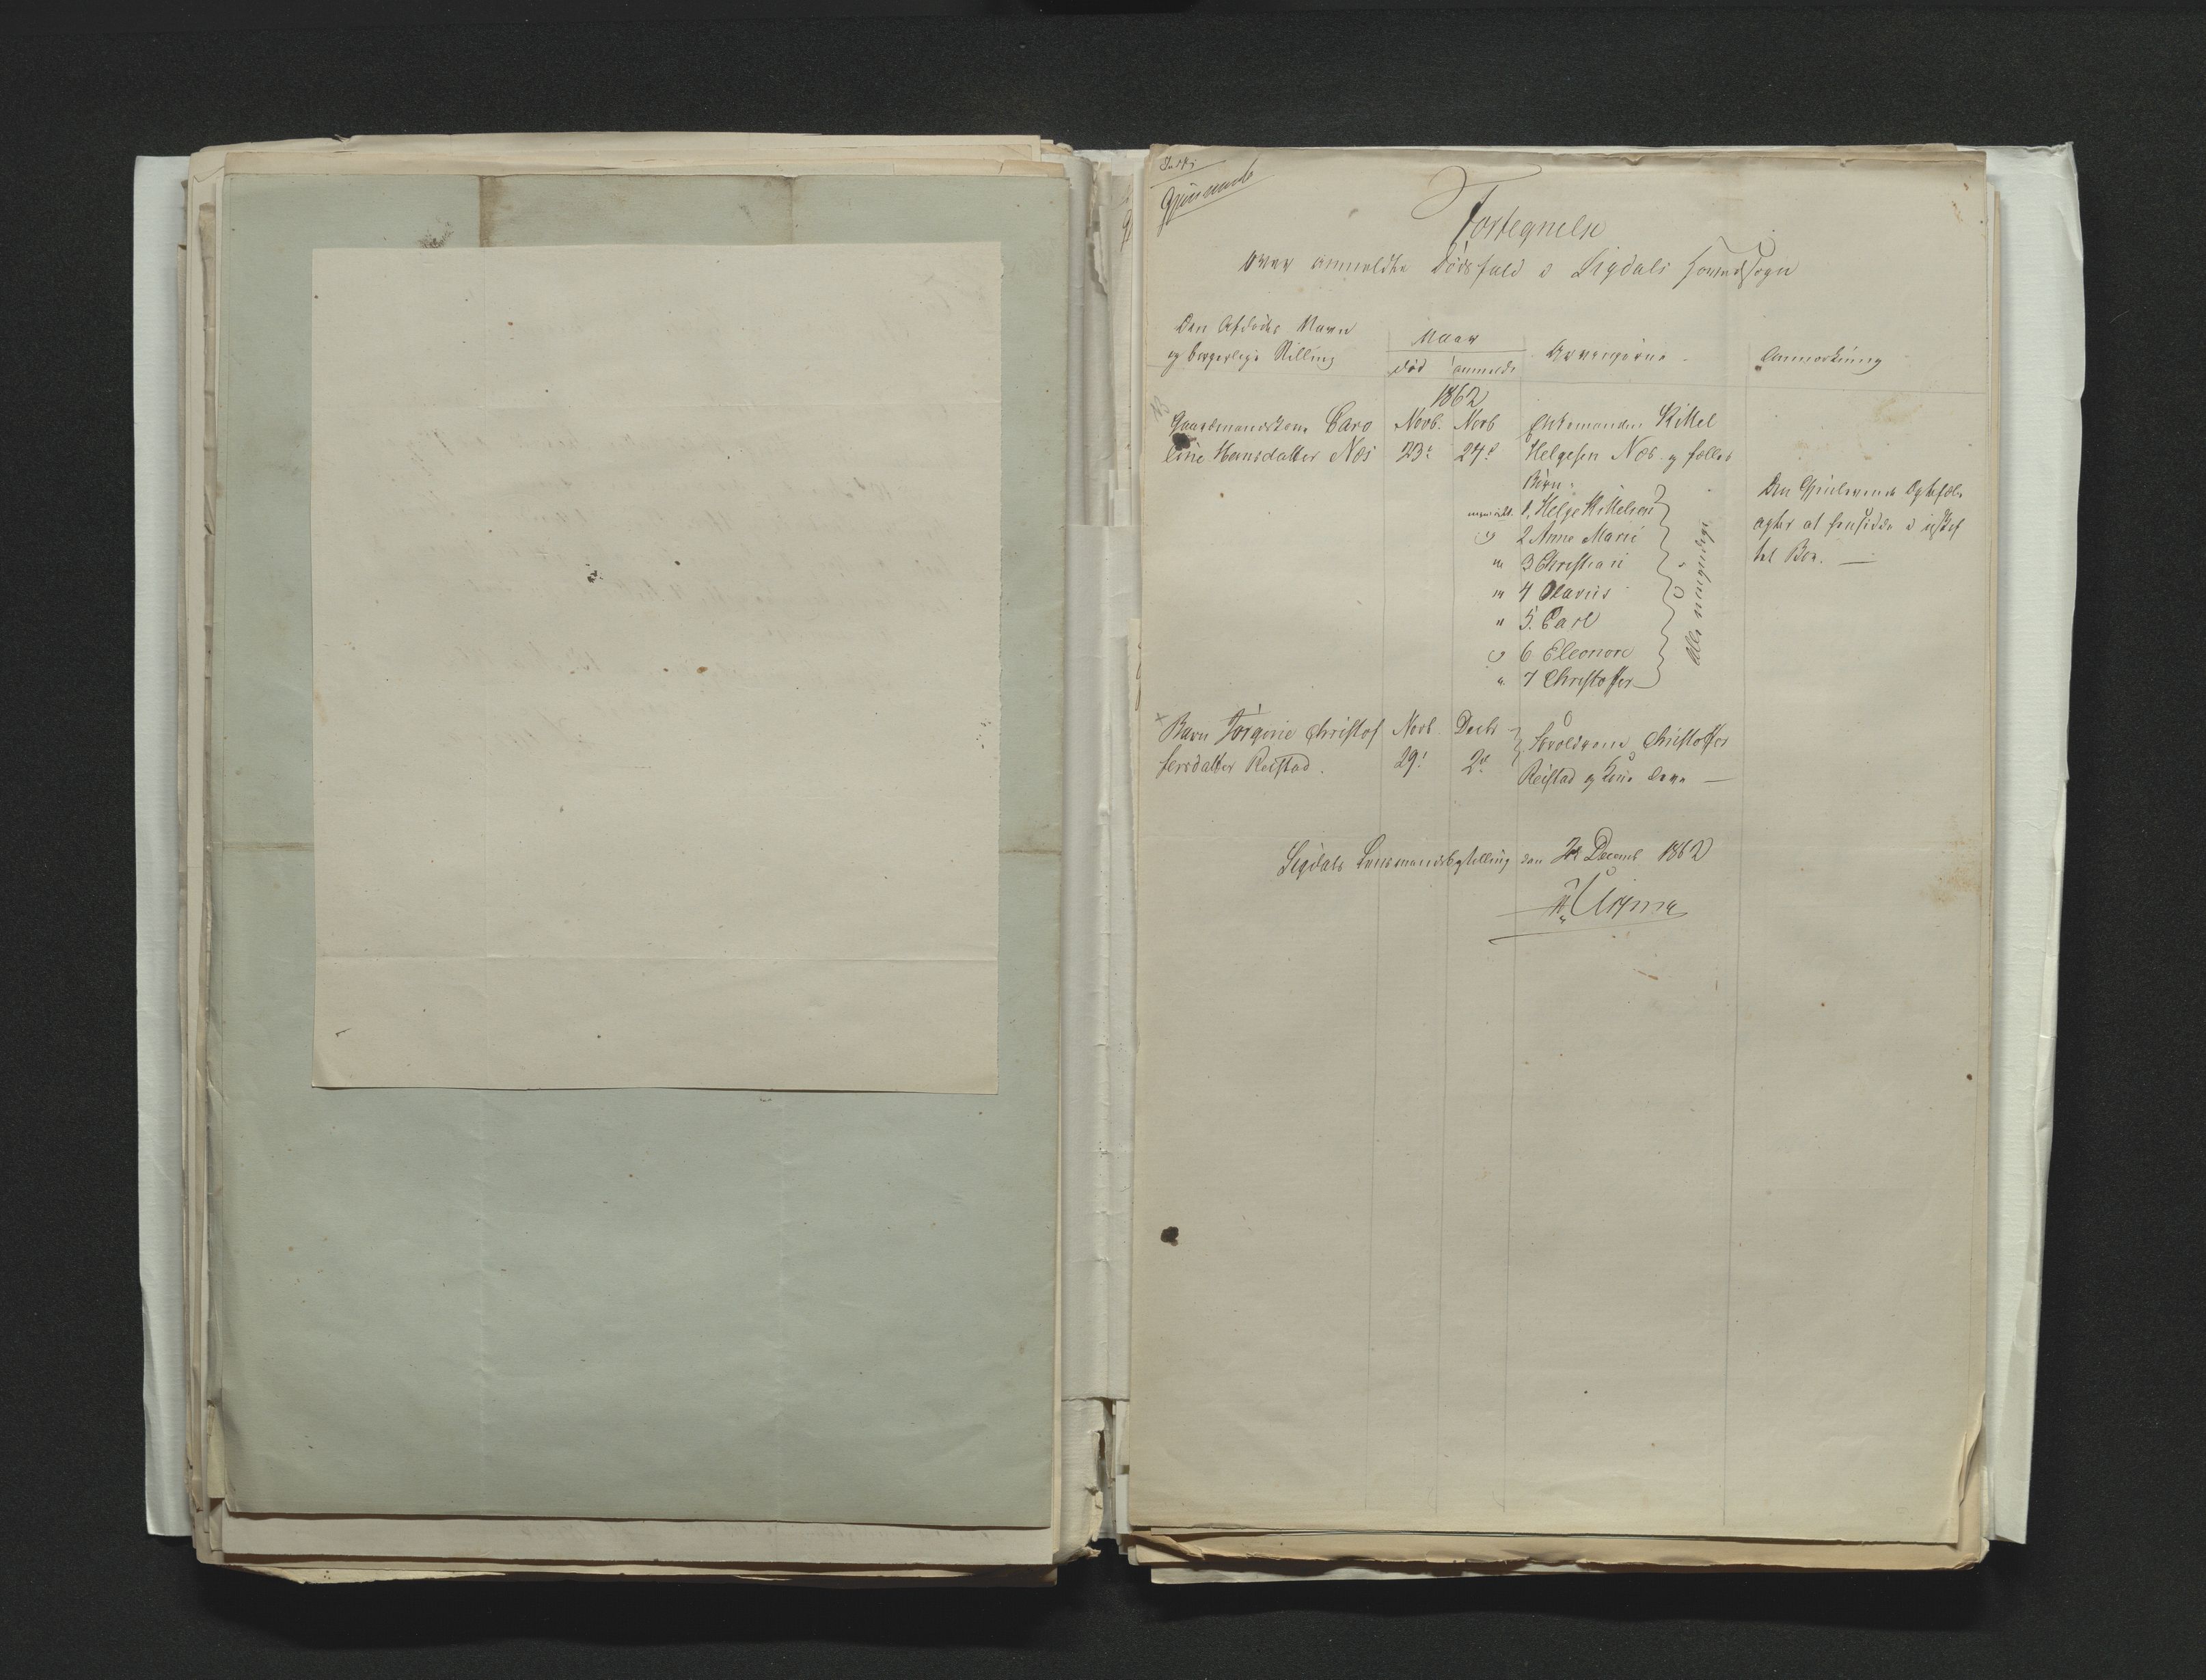 Fortegnelse
over anmeldte Dödsfald i Sigdals Hovedsogn
Den Afdödes Navn
og borgerlige Stilling
Naar
död
anmeldt
Arvingerne
Anmærkning
1862
Gaardmandskone Caro
line Hansdatter Næs
Novb. 23de
Novb 24de
Enkemanden Kittel
Helgesen Næs og fælles
Börn:
1, Helge Kittelsen
2 Anne Marie
3 Christian
4 Olavus
5. Carl
6 Eleonore
7 Christoffer
Alle umyndige
Den Gjenlevende Ægtefælle
agter at hensidde i uskif
tet Bo. —
Barn Jörgine Christof
fersdatter Reistad.
Novb. 29
Decbr 2de
Forældrene Christoffer
Reistad og Kone
Sigdals Lensmandsbestilling den Decemb 1862